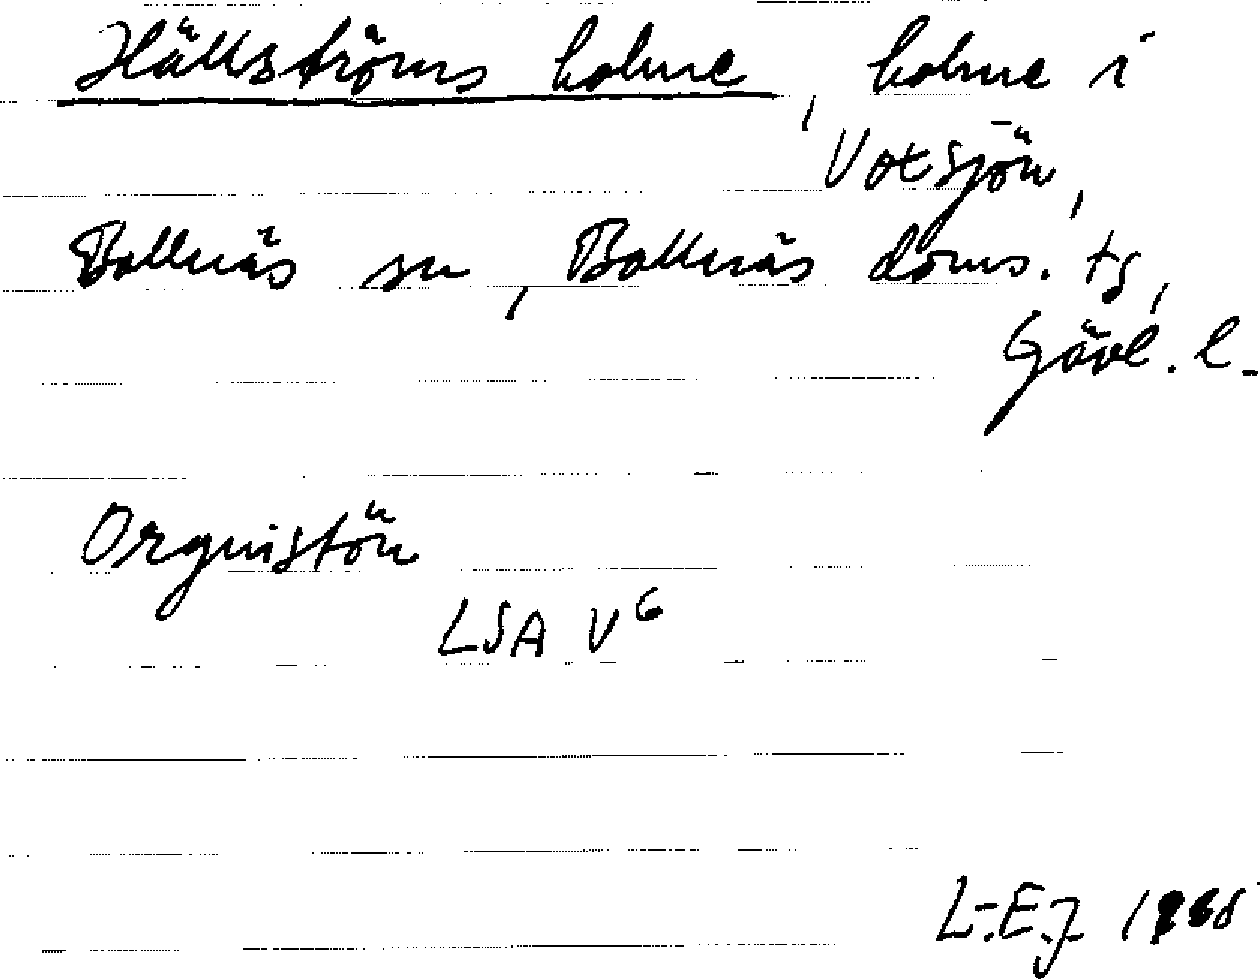 Hällströms holme, holme i
Votsjön,
Bollnäs sn, Bollnäs doms. tg,
Gävl. l.
Orquistön
LSA V6
L-E.J.